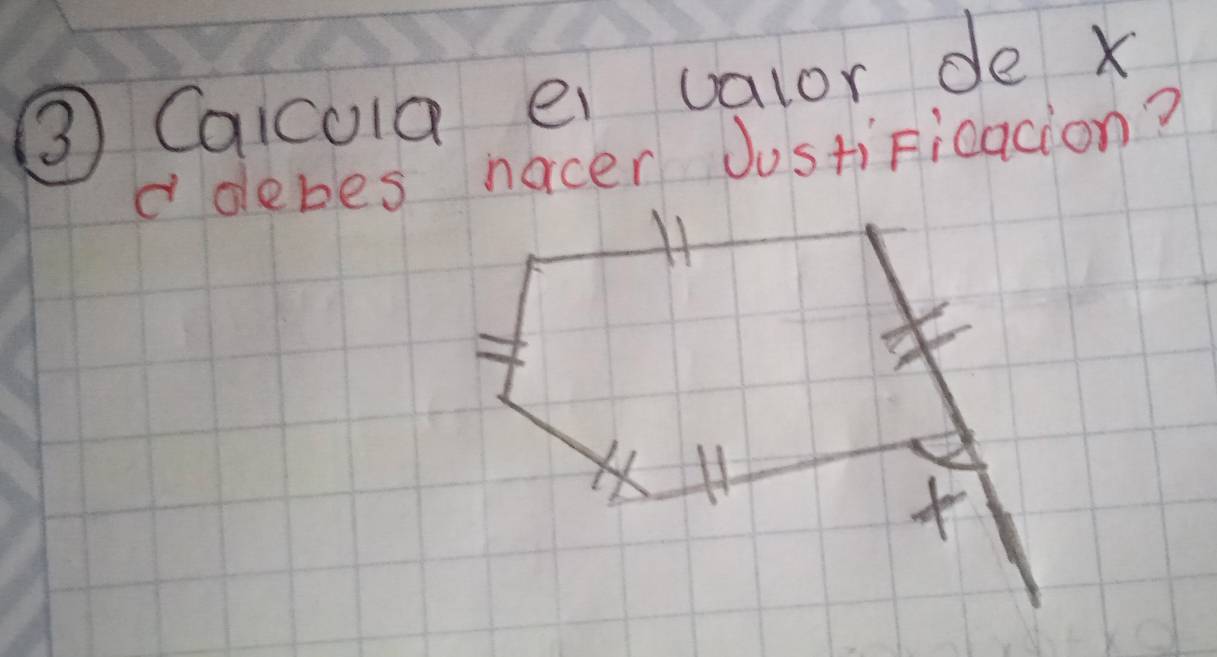 ③ Calcula el valor de x
d debes hacer Justificacion?
x